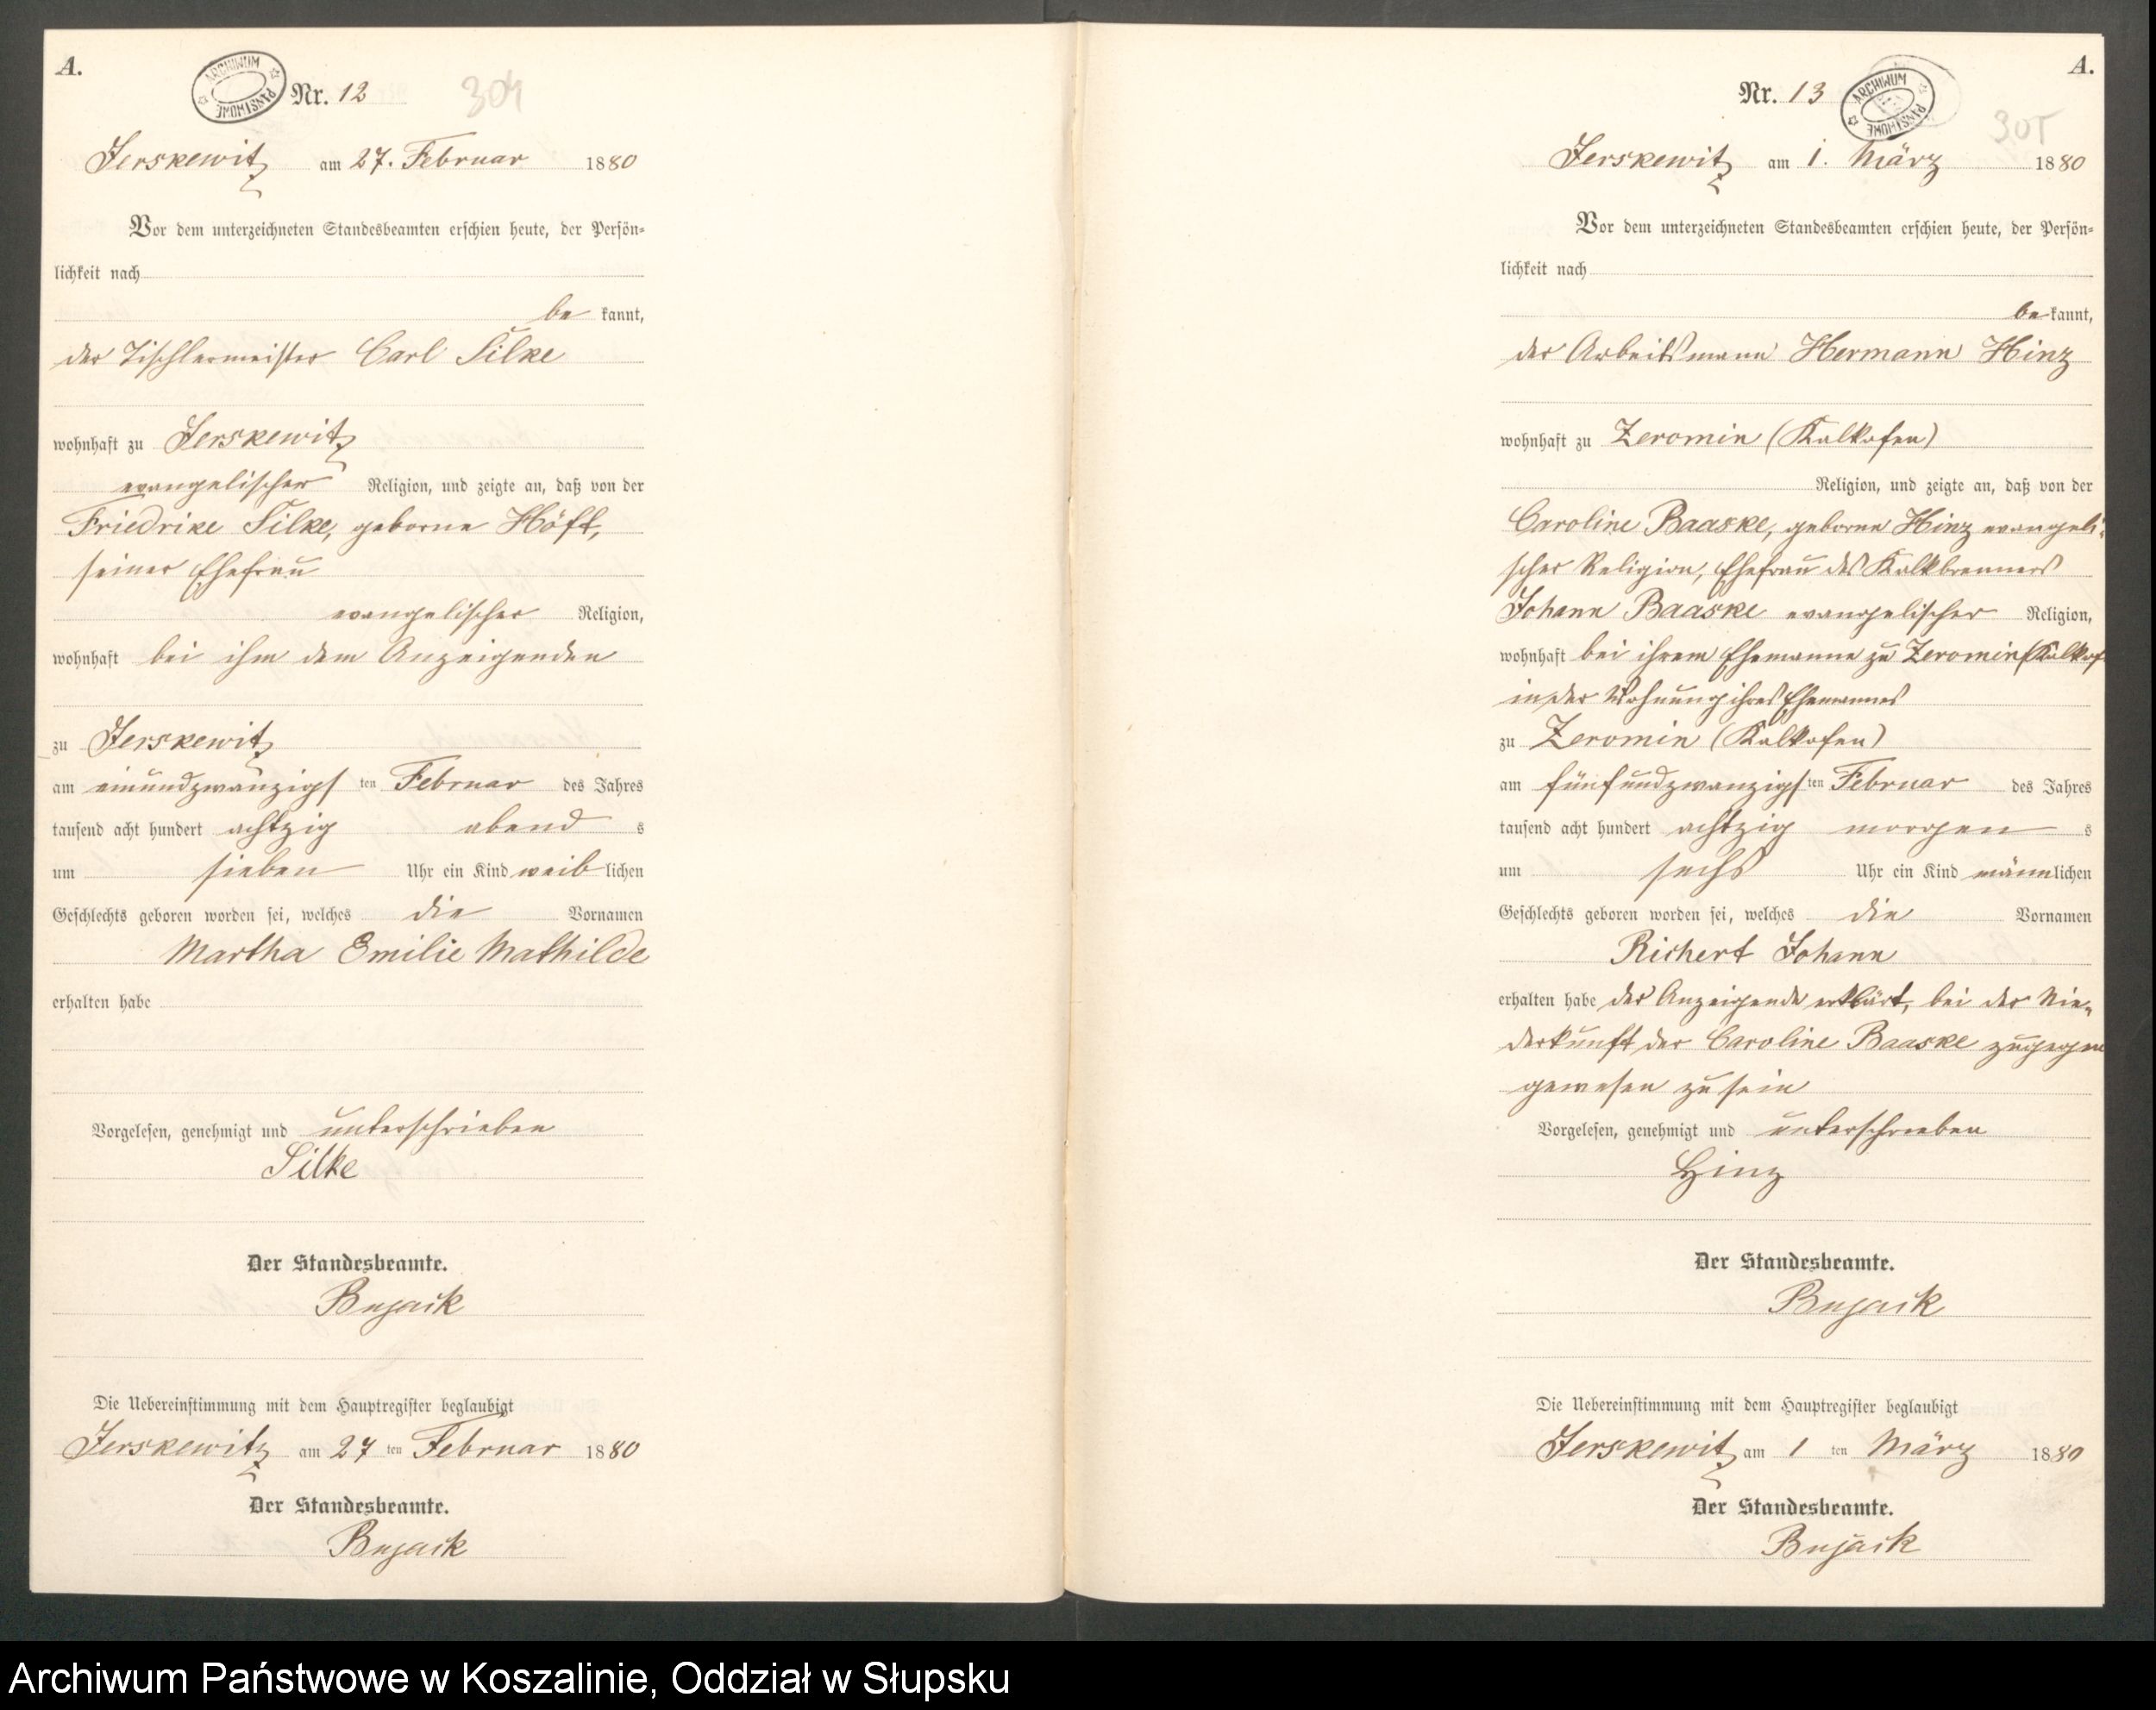 A.
ARCHIWUM PAŃSTWOWE
Nr. 12
304
Jerskewitz am 27. Februar 1880
Vor dem unterzeichneten Standesbeamten erschien heute, der Persön-
lichkeit nach
be kannt,
der Tischlermeister Carl Silke
wohnhaft zu Jerskewitz
evangelischer Religion, und zeigte an, daß von der
Friedrike Silke, geborne Höft,
seiner Ehefrau
evangelischer Religion,
wohnhaft bei ihm dem Anzeigenden
zu Jerskewitz
am einundzwanzigs ten Februar des Jahres
tausend acht hundert achtzig abend s
um sieben Uhr ein Kind weib lichen
Geschlechts geboren worden sei, welches die Vornamen
Martha Emilie Mathilde
erhalten habe
Vorgelesen, genehmigt und unterschrieben
Silke
Der Standesbeamte.
Bujack
Die Uebereinstimmung mit dem Hauptregister beglaubigt
Jerskewitz am 27 ten Februar 1880
Der Standesbeamte.
Bujack
A.
Nr. 13
ARCHIWUM PAŃSTWOWE
305
Jerskewitz am 1. März 1880
Vor dem unterzeichneten Standesbeamten erschien heute, der Persön-
lichkeit nach
be kannt,
der Arbeitsmann Hermann Hinz
wohnhaft zu Zeromin (Kalkofen)
Religion, und zeigte an, daß von der
Caroline Baaske, geborne Hinz evangeli-
scher Religion, Ehefrau des Kalkbrenners
Johann Baaske evangelischer Religion,
wohnhaft bei ihrem Ehemanne zu Zeromin (Kalkof
in der Wohnung ihres Ehemannes
zu Zeromin (Kalkofen)
am fünfundzwanzigs ten Februar des Jahres
tausend acht hundert achtzig morgen s
um sechs Uhr ein Kind männ lichen
Geschlechts geboren worden sei, welches die Vornamen
Richert Johann
erhalten habe der Anzeigende erklärt, bei der Nie-
derkunft der Caroline Baaske zugegen
gewesen zu sein
Vorgelesen, genehmigt und unterschrieben
Hinz
Der Standesbeamte.
Bujack
Die Uebereinstimmung mit dem Hauptregister beglaubigt
Jerskewitz am 1 ten März 1880
Der Standesbeamte.
Bujack
Archiwum Państwowe w Koszalinie, Oddział w Słupsku